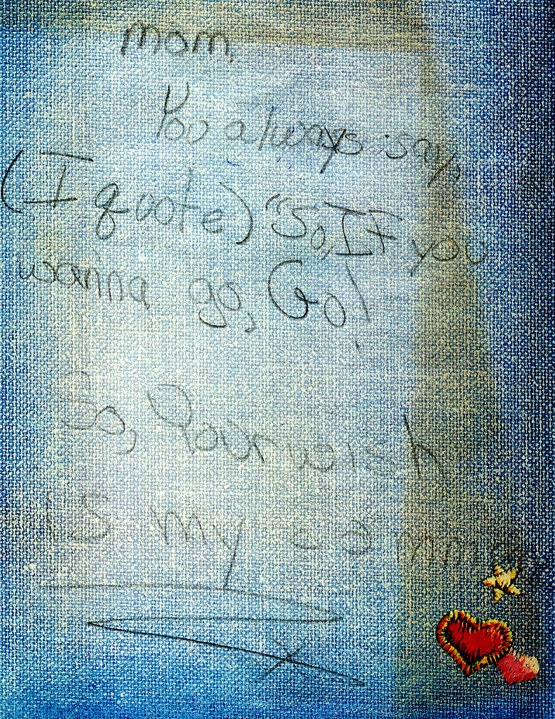 mom,
You always say,
(I quote) "So, If you
wanna go, Go!
So, Your wish
is my comm